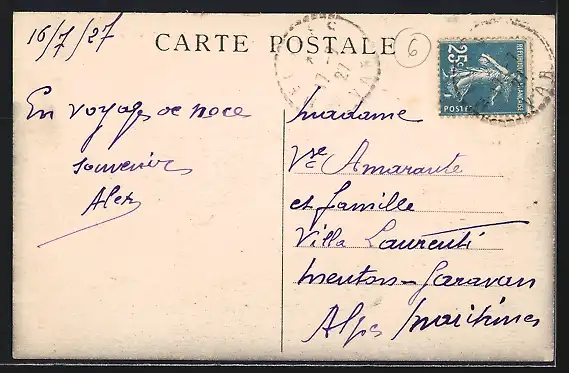 16/7/27
CARTE POSTALE
6
25c
REPUBLIQUE FRANÇAISE
POSTES
27
VAR
En voyage de noce
souvenir
Alex
Madame
Vve Amarante
et famille
Villa Laurenti
Menton-Garavan
Alpes Maritimes